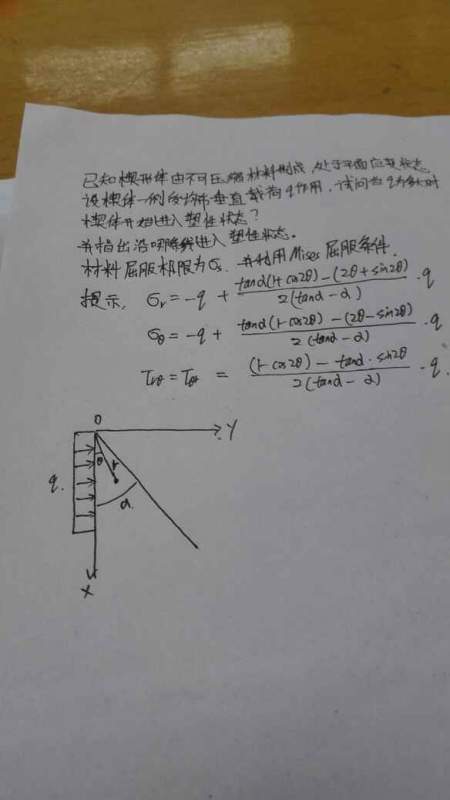 已知楔形体由不可压缩材料制成,处于平面应变状态
设楔体一侧受均布垂直载荷q作用,试问当q为多大时
楔体开始进入塑性状态?
并指出沿哪条线进入塑性状态。
材料屈服极限为σs. 并利用Mises屈服条件.
提示, σr = -q + tanα(1+cos2θ)-(2θ+sin2θ) / 2(tanα-α) ·q
σθ = -q + tanα(1-cos2θ)-(2θ-sin2θ) / 2(tanα-α) ·q
τrθ = τθr = (1-cos2θ)-tanα·sin2θ / 2(tanα-α) ·q.
O
Y
q.
θ
r
α.
X